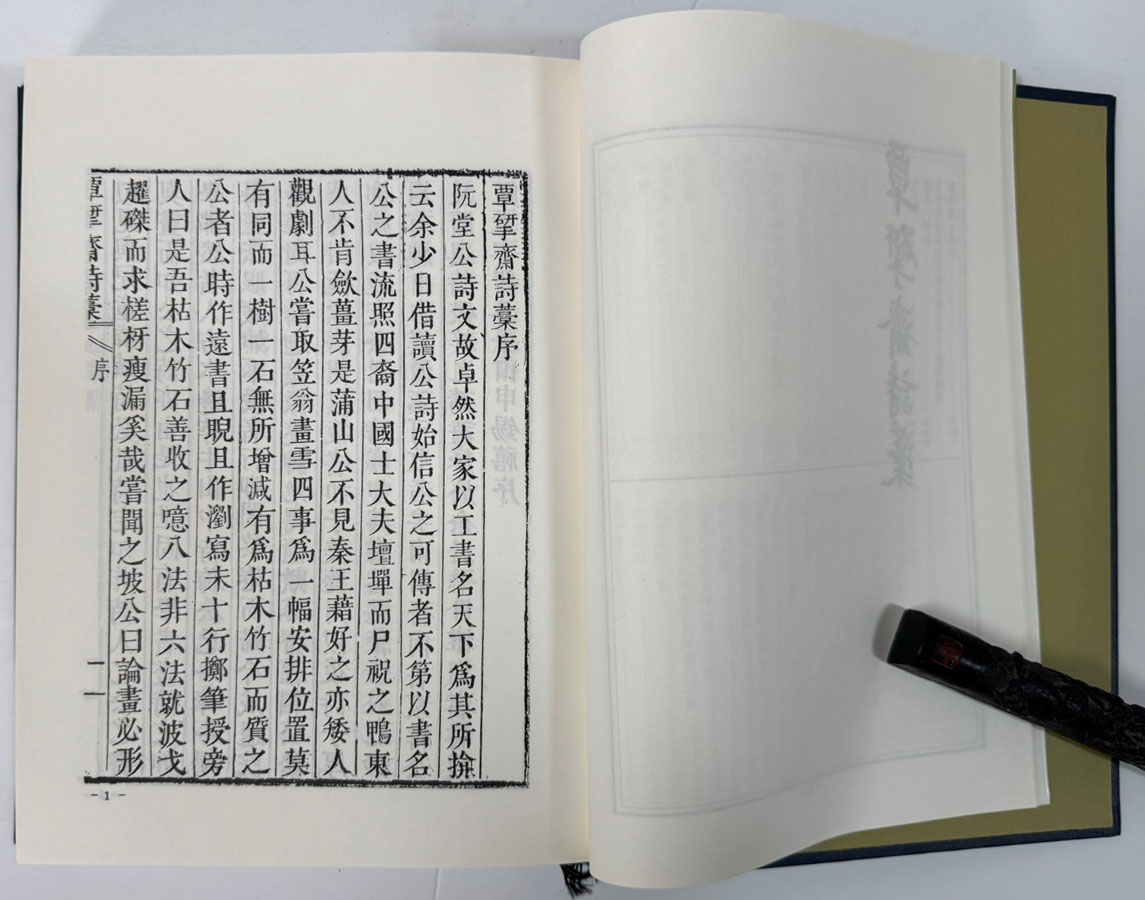 覃揅齋詩藁序
阮堂公詩文故卓然大家以工書名天下爲其所揜
云余少日借讀公詩始信公之可傳者不第以書名
公之書流照四裔中國士大夫壇墠而尸祝之鴨東
人不肯歛薑芽是蒲山公不見秦王藉好之亦矮人
觀劇耳公嘗取笠翁畫雪四事爲一幅安排位置莫
有同而一樹一石無所增減有爲枯木竹石而質之
公者公時作遠書且睨且作瀏寫未十行擲筆授旁
人曰是吾枯木竹石善收之噫八法非六法就波戈
趯磔而求槎枒瘦漏奚哉嘗聞之坡公曰論畫必形
覃揅齋詩藁 序 一
- 1 -
覃揅齋詩藁